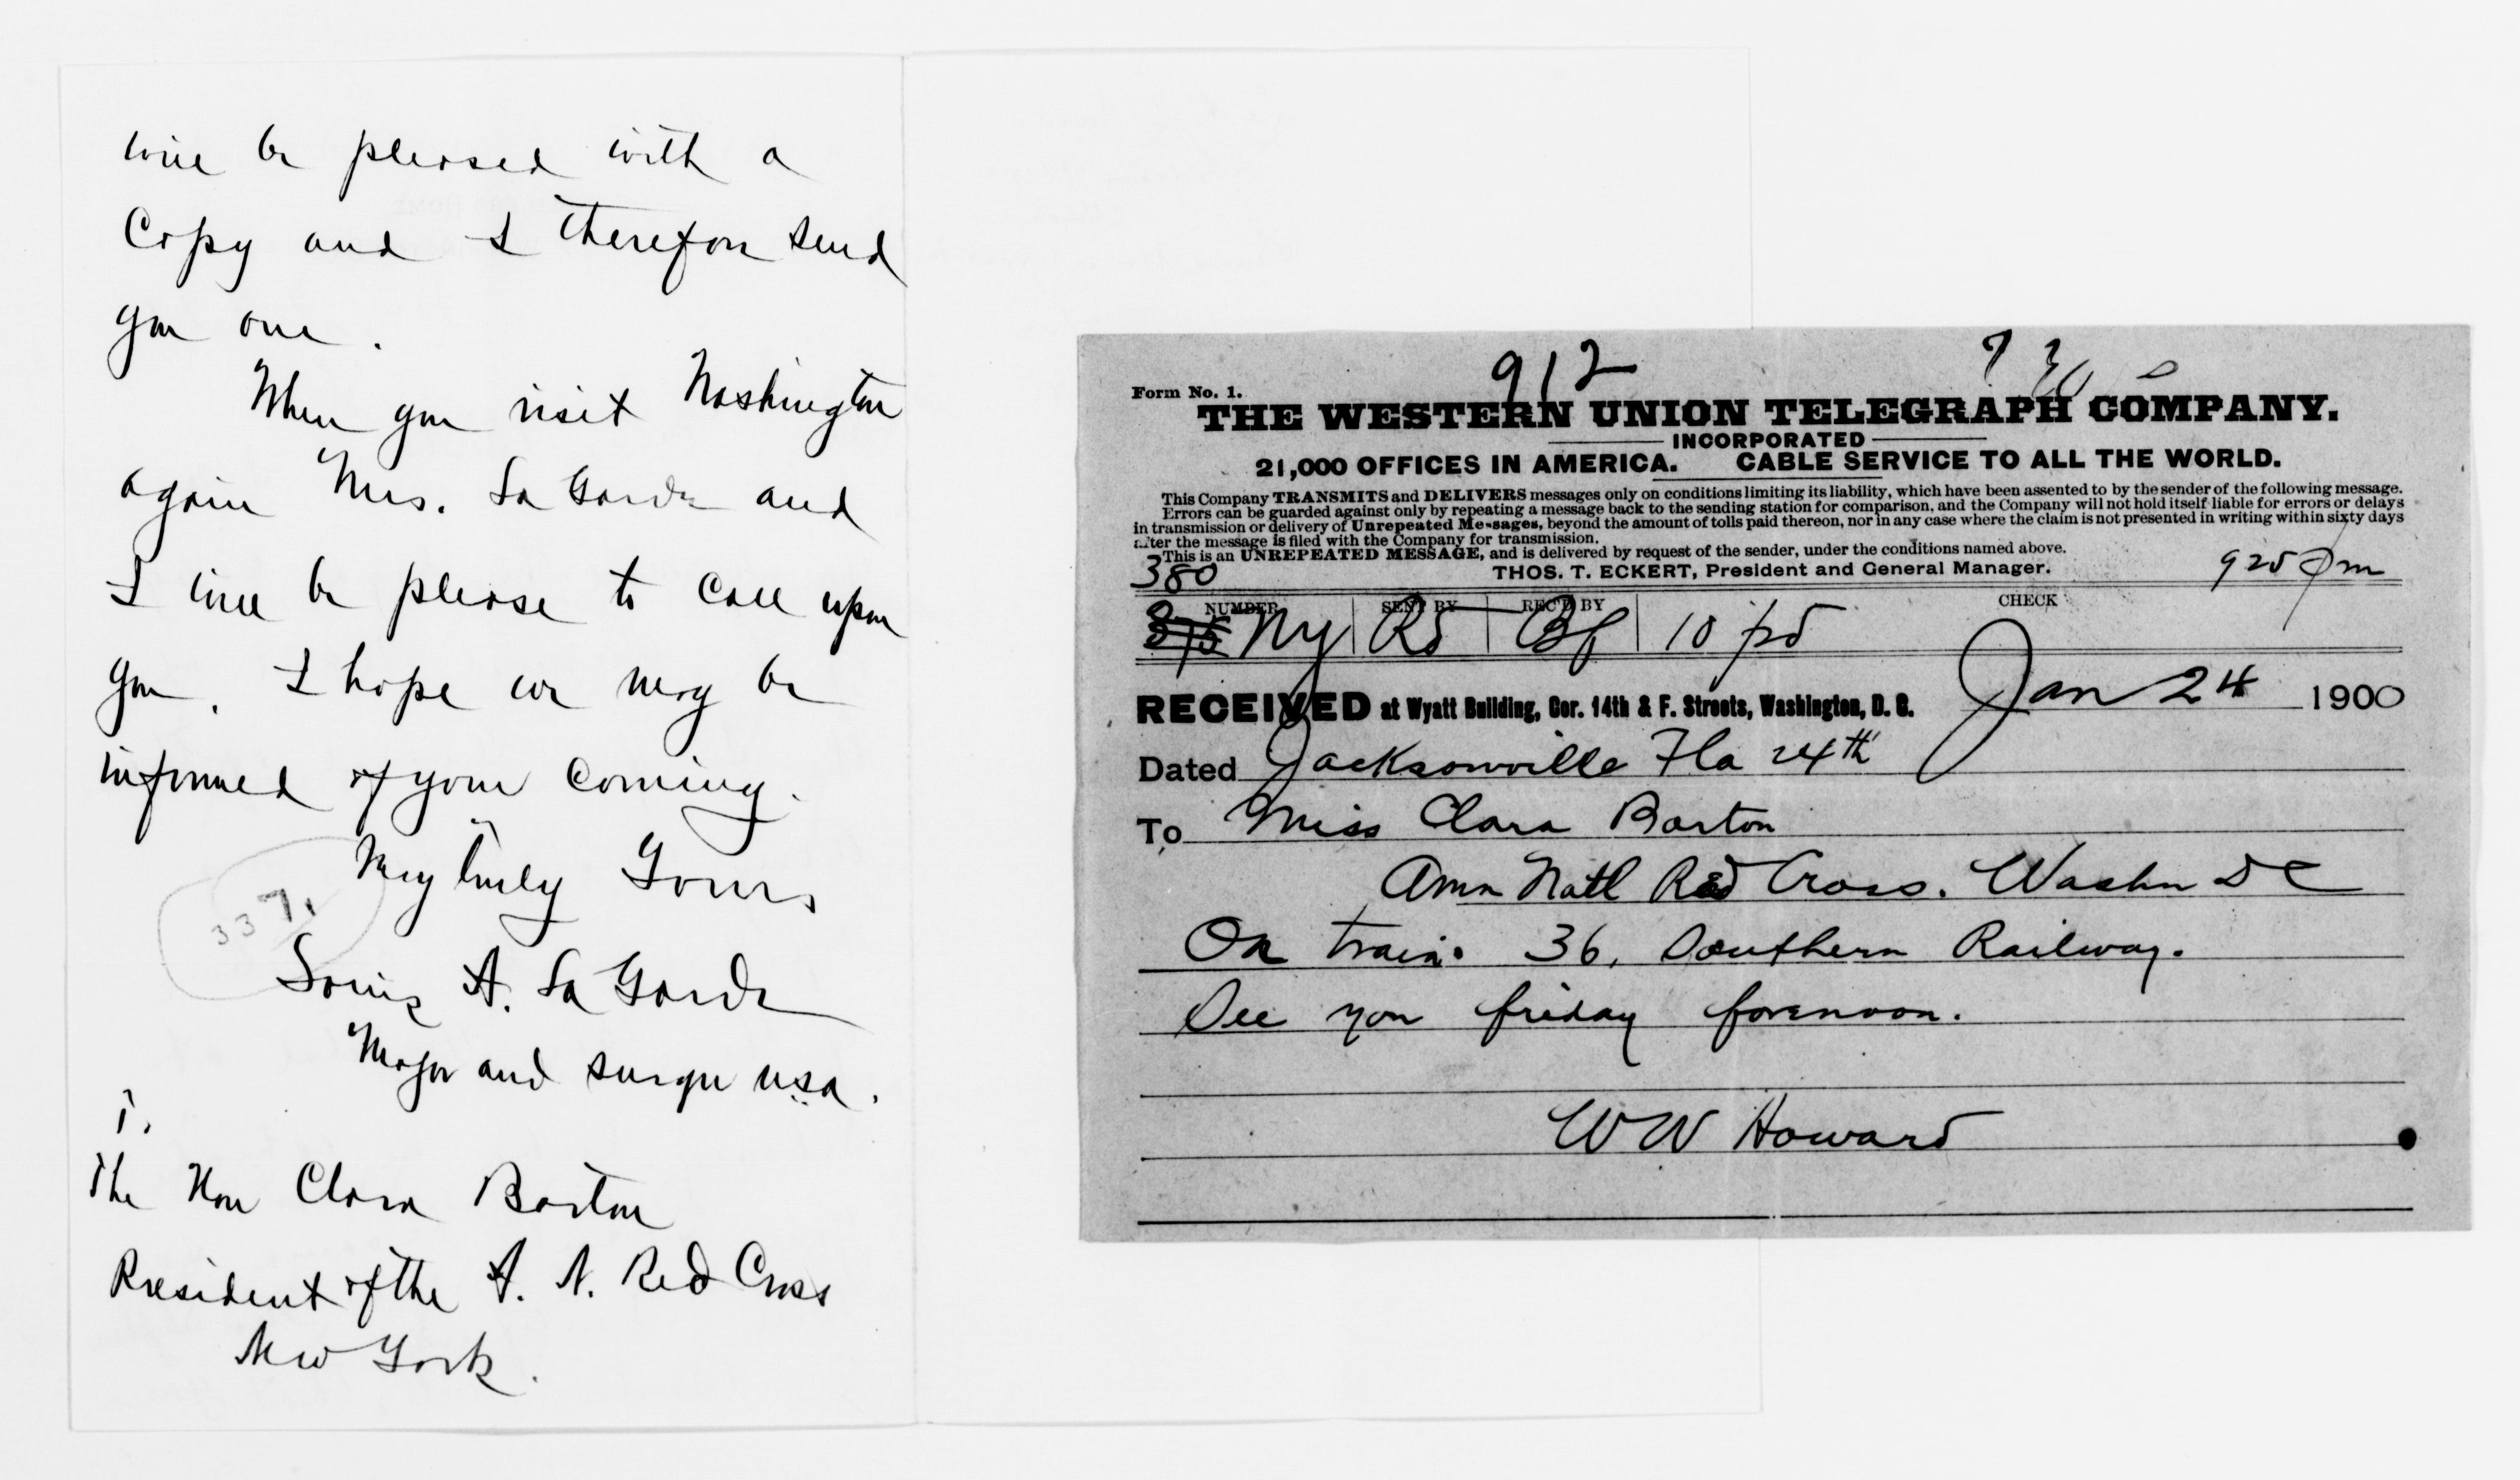 will be pleased with a
Copy and I therefore send
you one.
When you visit Washington
again Mrs. La Garde and
I will be please to call upon
you. I hope we may be
informed of your coming.
Very truly Yours
337.
Louis A. La Garde
Major and surgn usa.
T.
The Hon Clara Barton
President of the A. N. Red Cross
New York.
912
Form No. 1.
THE WESTERN UNION TELEGRAPH COMPANY.
INCORPORATED
21,000 OFFICES IN AMERICA. CABLE SERVICE TO ALL THE WORLD.
This Company TRANSMITS and DELIVERS messages only on conditions limiting its liability, which have been assented to by the sender of the following message.
Errors can be guarded against only by repeating a message back to the sending station for comparison, and the Company will not hold itself liable for errors or delays
in transmission or delivery of Unrepeated Messages, beyond the amount of tolls paid thereon, nor in any case where the claim is not presented in writing within sixty days
after the message is filed with the Company for transmission.
This is an UNREPEATED MESSAGE, and is delivered by request of the sender, under the conditions named above.
THOS. T. ECKERT, President and General Manager.
380 925 pm
NUMBER SENT BY REC'D BY CHECK
Ny Rs Bf 10 pd
RECEIVED at Wyatt Building, Cor. 14th & F. Streets, Washington, D. C. Jan 24 1900
Dated Jacksonville Fla 24th
To Miss Clara Barton
Amn Natl Red Cross. Washn DC
On train. 36, Southern Railway.
See you friday forenoon.
WW Howard